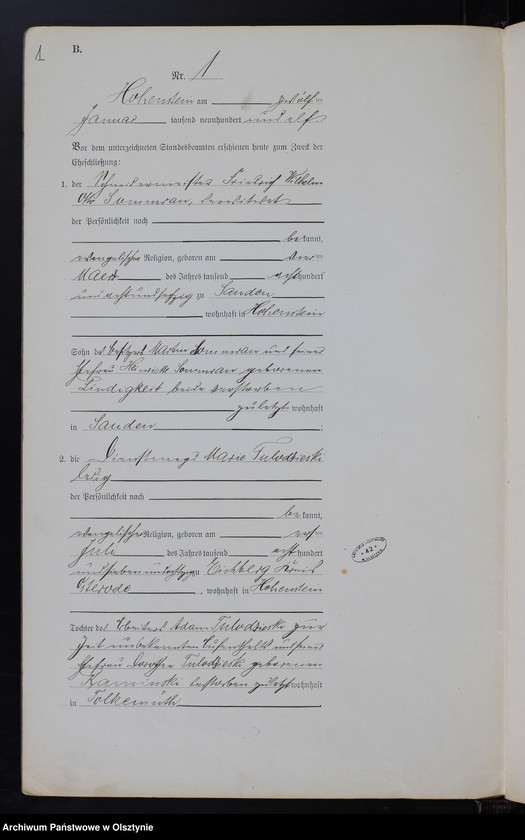 1
B.
Nr. 1
Hohenstein am zwölf ten
Januar tausend neunhundert und elf
Vor dem unterzeichneten Standesbeamten erschienen heute zum Zweck der
Eheschließung:
1. der Schneidermeister Friedrich Wilhelm
Otto Sommran, verwitwet
der Persönlichkeit nach
bekannt,
evangelischer Religion, geboren am vier ten
März des Jahres tausend acht hundert
zu Sanden
, wohnhaft in Hohenstein
Sohn des Besitzers Martin Sommran und seiner
Ehefrau Henriette Sommran geborenen
Lindigkeit beide verstorben
zuletzt wohnhaft
in Sanden ;
2. die Dienstmagd Marie Tulodzieski
ledig
der Persönlichkeit nach
bekannt,
evangelischer Religion, geboren am
Juli des Jahres tausend acht hundert
und siebenundachtzig zu Eichberg Kreis
Osterode , wohnhaft in Hohenstein
Tochter des Arbeiters Adam Tulodzieski zur
Zeit unbekannten Aufenthalts und seiner
Ehefrau Dorothea Tulodzieski geborenen
Kaminski verstorben zuletzt wohnhaft
in Tolkemüth
42
Archiwum Państwowe w Olsztynie